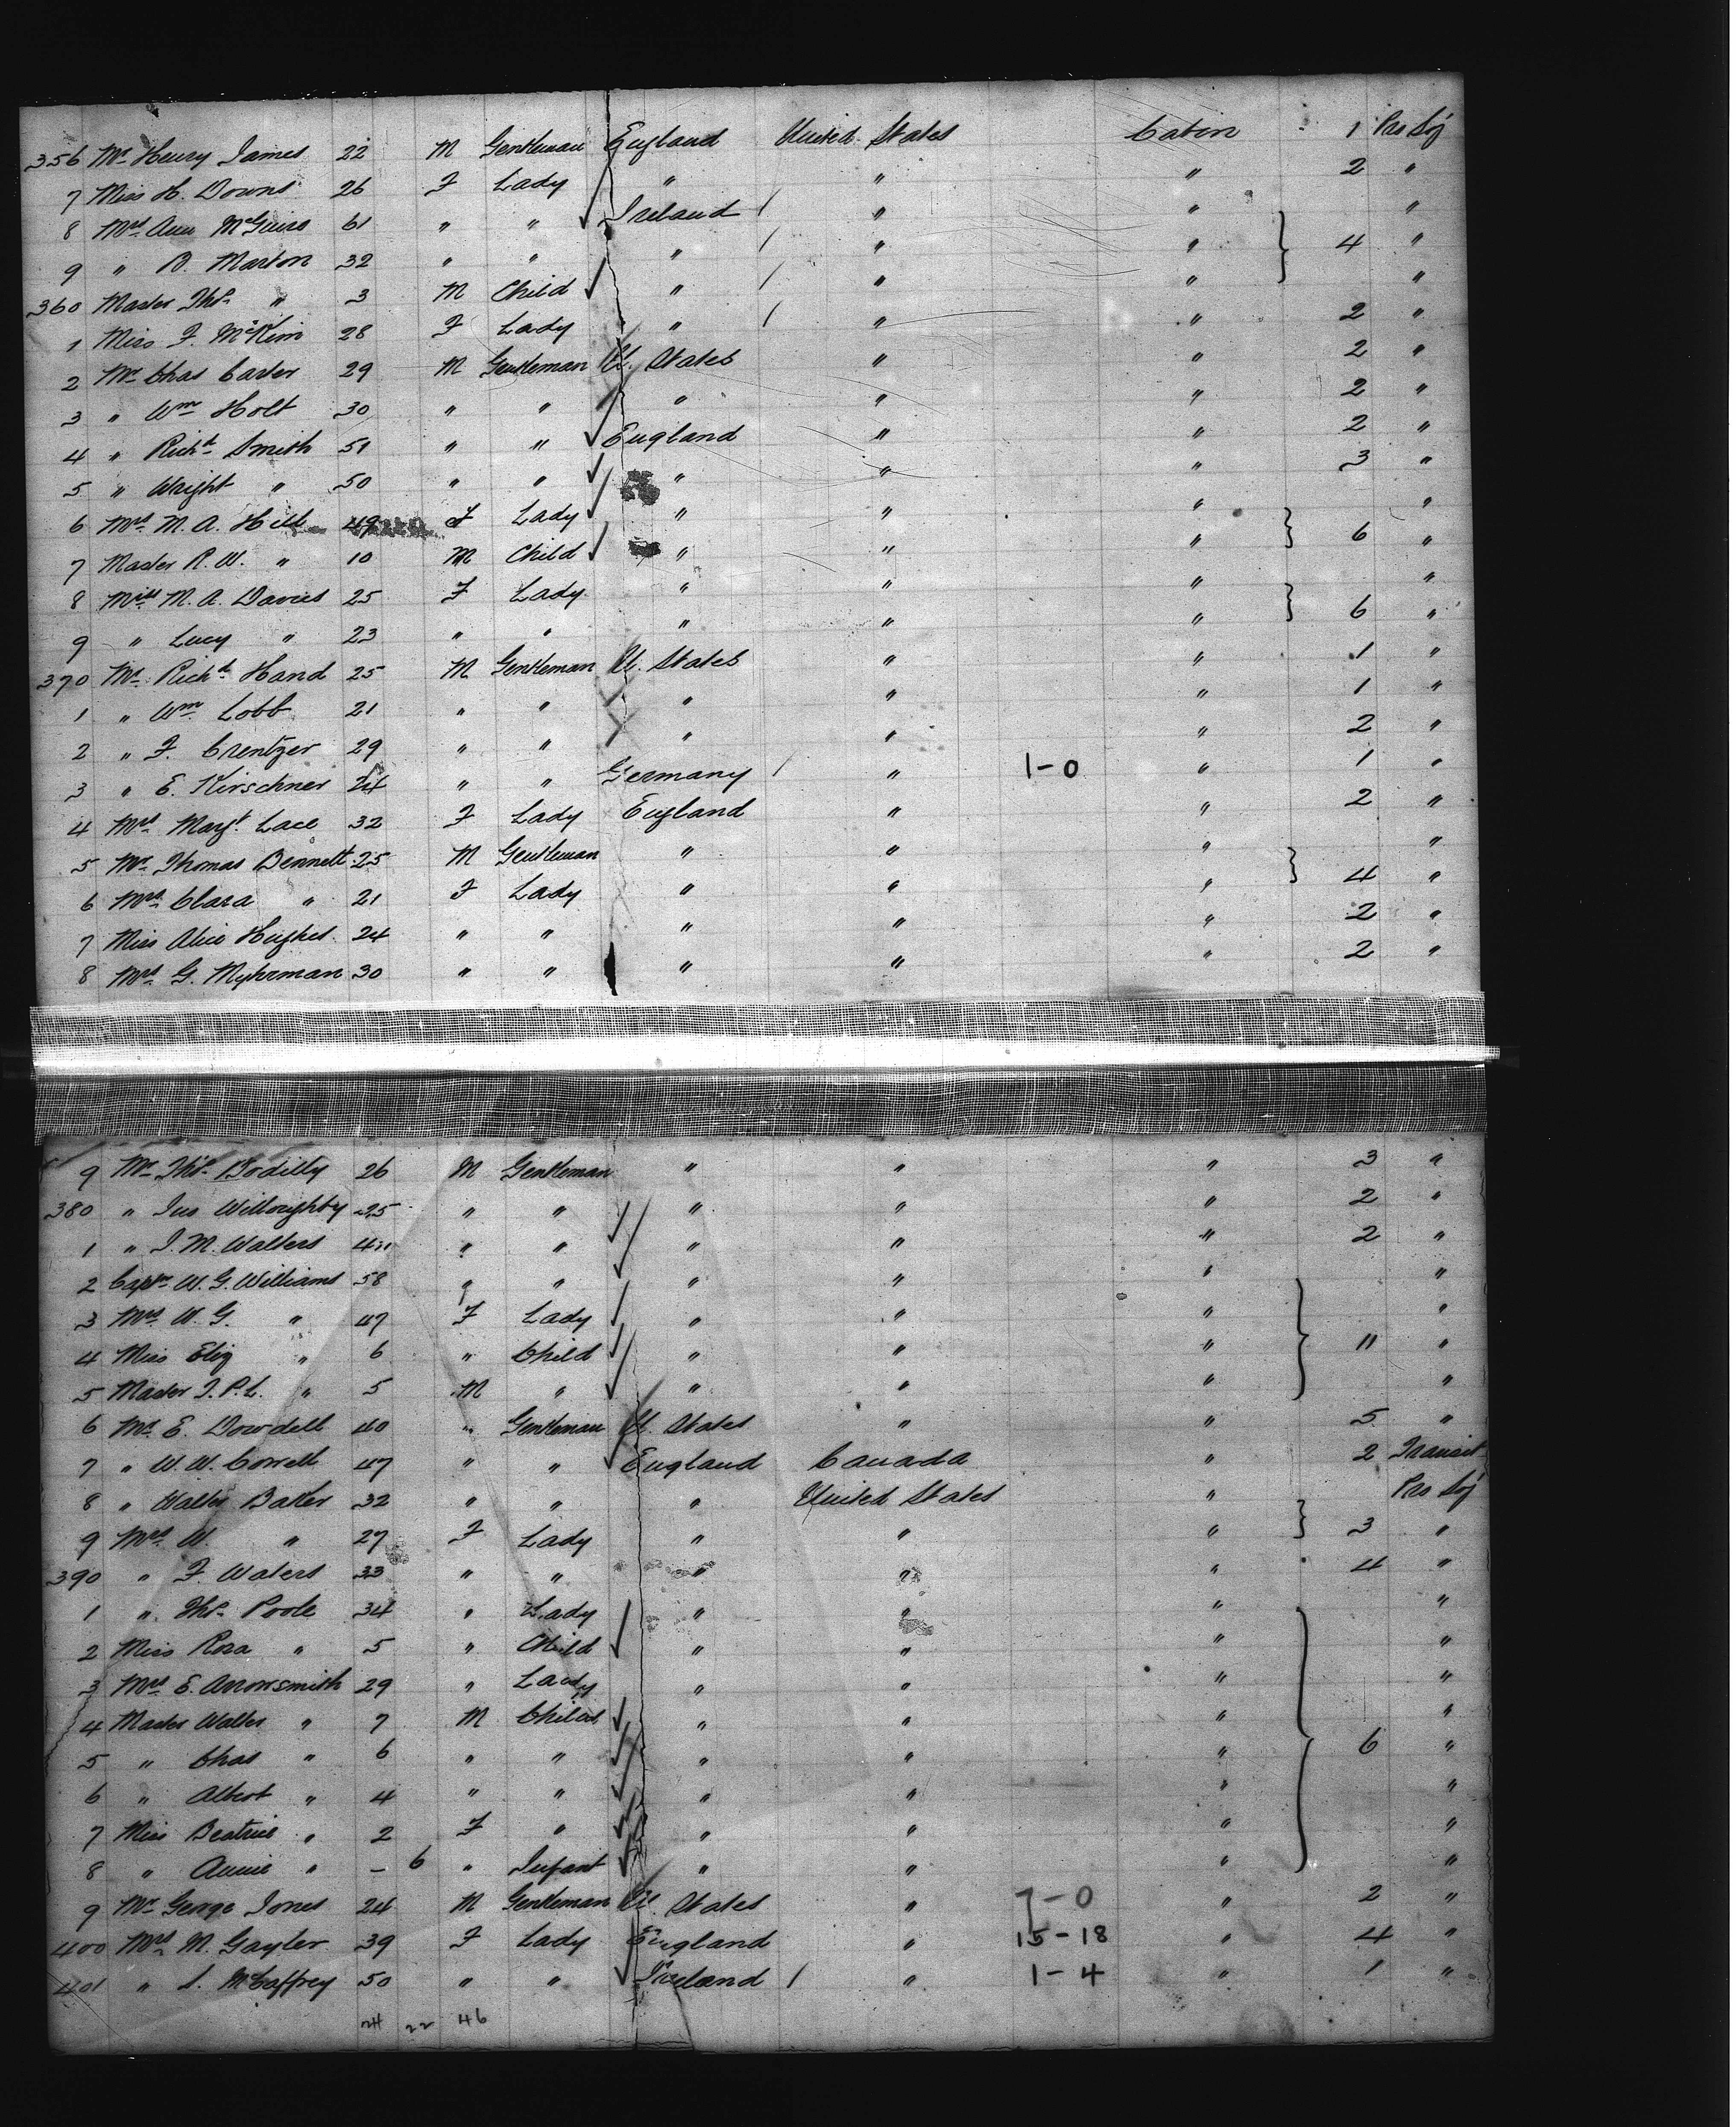 356 Mr Henry James 22 M Gentleman England United States Cabin 1 Pro Soj
7 Miss H. Downs 26 F Lady " " " 2 "
8 Mrs Ann McGuirs 61 " " Ireland / " " "
9 " B. Marton 32 " " " / " " 4 "
360 Master Thos " 3 M Child " / " " "
1 Miss F. McKim 28 F Lady " / " " 2 "
2 Mr Chas Carter 29 M Gentleman U. States " " 2 "
3 " Wm Holt 30 " " " " " 2 "
4 " Richd Smith 51 " " England " " 2 "
5 " Wright " 50 " " " " " 3 "
6 Mrs M. A. Hill 49 F Lady " " " "
7 Master R. W. " 10 M Child " " " 6 "
8 Miss M. A. Davies 25 F Lady " " " "
9 " Lucy " 23 " " " " " 6 "
370 Mr Richd Hand 25 M Gentleman U. States " " 1 "
1 " Wm Lobb 21 " " " " " 1 "
2 " F. Crentzer 29 " " " " " 2 "
3 " E. Kirschner 24 " " Germany / " 1-0 " 1 "
4 Mrs Margt Lace 32 F Lady England " " 2 "
5 Mr Thomas Bennett 25 M Gentleman " " " "
6 Mrs Clara " 21 F Lady " " " 4 "
7 Miss Alice Hughes 24 " " " " " 2 "
8 Mrs G. Myhrman 30 " " " " " 2 "
9 Mr Thos Bodilly 26 M Gentleman " " " 3 "
380 " Jas Willoughby 25 " " " " " 2 "
1 " J. M. Walters " " " " " 2 "
2 Captn W. G. Williams 58 " " " " " "
3 Mrs W. G. " 47 F Lady " " " "
4 Miss Eliz " 6 " Child " " " 11 "
5 Master J. P. L. " 5 M " " " " "
6 Mr E. Dowdell 40 " Gentleman U. States " " 5 "
7 " W. W. Correll 47 " " England Canada " 2 Transit
8 " Walter Baker 32 " " " United States " Pro Soj
9 Mrs W. " 27 F Lady " " " 3 "
390 " F. Waters 33 " " " " " 4 "
1 " Thos Poole 34 " Lady " " " "
2 Miss Rosa " 5 " Child " " " "
3 Mrs E. Arrowsmith 29 " Lady " " " "
4 Master Walter " 7 M Child " " " "
5 " Chas " 6 " " " " " 6 "
6 " Albert " 4 " " " " " "
7 Miss Beatrice " 2 F " " " " "
8 " Annie " - 6 " Infant " " " "
9 Mr George Jones 24 M Gentleman U. States " 7-0 " 2 "
400 Mrs M. Gayler 39 F Lady England " 15-18 " 4 "
401 " S. McCaffrey 50 " " Ireland / " 1-4 " 1 "
24 22 46